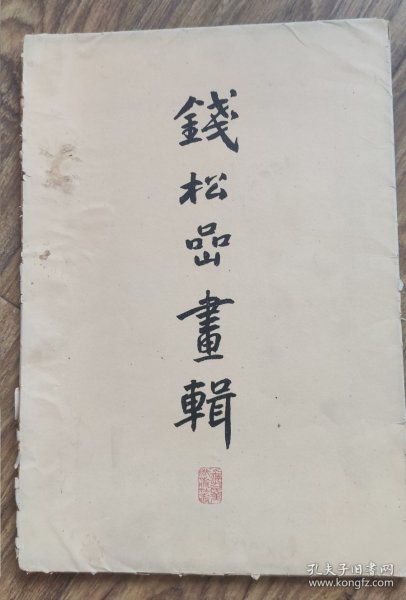 錢松嵒畫輯
孔夫子旧书网
www.kongfz.com